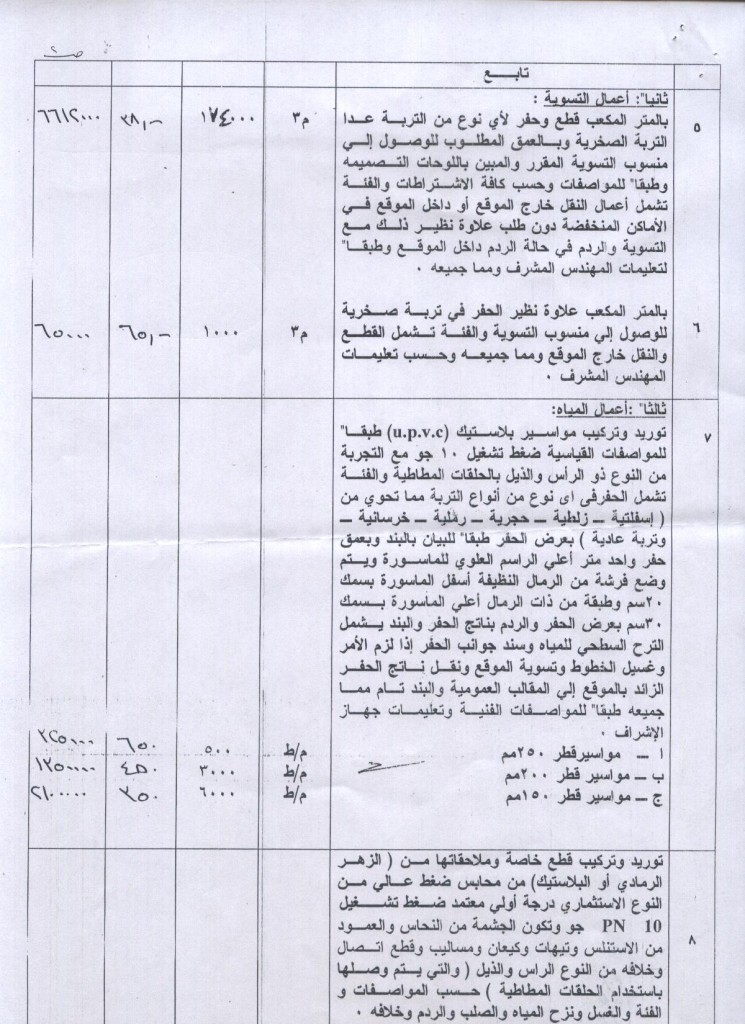 ص٢
تابـــــع
ثانيا": أعمال التسوية :
٥ بالمتر المكعب قطع وحفر لأي نوع من التربة عدا م٣ ١٧٤٠٠٠ ٣٨,- ٦٦١٢٠٠٠
التربة الصخرية وبالعمق المطلوب للوصول إلي
منسوب التسوية المقرر والمبين باللوحات التصميمه
وطبقا" للمواصفات وحسب كافة الاشتراطات والفئة
تشمل أعمال النقل خارج الموقع أو داخل الموقع في
الأماكن المنخفضة دون طلب علاوة نظير ذلك مع
التسوية والردم في حالة الردم داخل الموقع وطبقا"
لتعليمات المهندس المشرف ومما جميعه ٠
٦ بالمتر المكعب علاوة نظير الحفر في تربة صخرية م٣ ١٠٠٠ ٦٥,- ٦٥٠٠٠
للوصول إلي منسوب التسوية والفئة تشمل القطع
والنقل خارج الموقع ومما جميعه وحسب تعليمات
المهندس المشرف ٠
ثالثا" :أعمال المياه:
٧ توريد وتركيب مواسير بلاستيك (u.p.v.c) طبقا"
للمواصفات القياسية ضغط تشغيل ١٠ جو مع التجربة
من النوع ذو الرأس والذيل بالحلقات المطاطية والفئة
تشمل الحفرفى اى نوع من أنواع التربة مما تحوي من
( إسفلتية – زلطية – حجرية – رملية – خرسانية –
وتربة عادية ) بعرض الحفر طبقا" للبيان بالبند وبعمق
حفر واحد متر أعلي الراسم العلوي للماسورة ويتم
وضع فرشة من الرمال النظيفة أسفل الماسورة بسمك
٢٠سم وطبقة من ذات الرمال أعلي الماسورة بسمك
٣٠سم بعرض الحفر والردم بناتج الحفر والبند يشمل
الترح السطحي للمياه وسند جوانب الحفر إذا لزم الأمر
وغسيل الخطوط وتسوية الموقع ونقل ناتج الحفر
الزائد بالموقع إلي المقالب العمومية والبند تام مما
جميعه طبقا" للمواصفات الفنية وتعليمات جهاز
الإشراف ٠
ا – مواسير قطر ٢٥٠مم م/ط ٥٠٠ ٦٥٠ ٣٢٥٠٠٠
ب – مواسير قطر ٢٠٠مم م/ط ٣٠٠٠ ٤٥٠ ١٣٥٠٠٠٠
ج – مواسير قطر ١٥٠مم م/ط ٦٠٠٠ ٣٥٠ ٢١٠٠٠٠٠
توريد وتركيب قطع خاصة وملاحقاتها من ( الزهر
الرمادي أو البلاستيك) من محابس ضغط عالي من
النوع الاستثماري درجة أولي معتمد ضغط تشغيل
٨ PN 10 جو وتكون الجشمة من النحاس والعمود
من الاستنلس وتيهات وكيعان ومساليب وقطع اتصال
وخلافه من النوع الراس والذيل ( والتي يتم وصلها
باستخدام الحلقات المطاطية ) حسب المواصفات و
الفئة والغسل ونزح المياه والصلب والردم وخلافه ٠